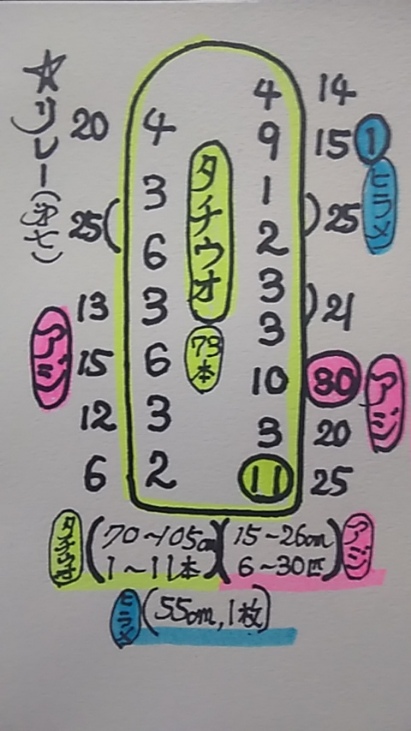 ☆リレー(沖七)
4 14
20 4 9 15 1 ヒラメ
3 タチウオ 1
25 ( 6 2 ) 25
13 3 3
3 ) 21
アジ 15 6 73本 10 30 アジ
12 3 3 20
6 2 11 25
タチウオ (70~105cm 1~11本) (15~26cm 6~30匹) アジ
ヒラメ (55cm, 1枚)